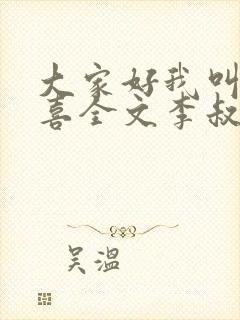 大家好我叫
喜全文李叔
吴温